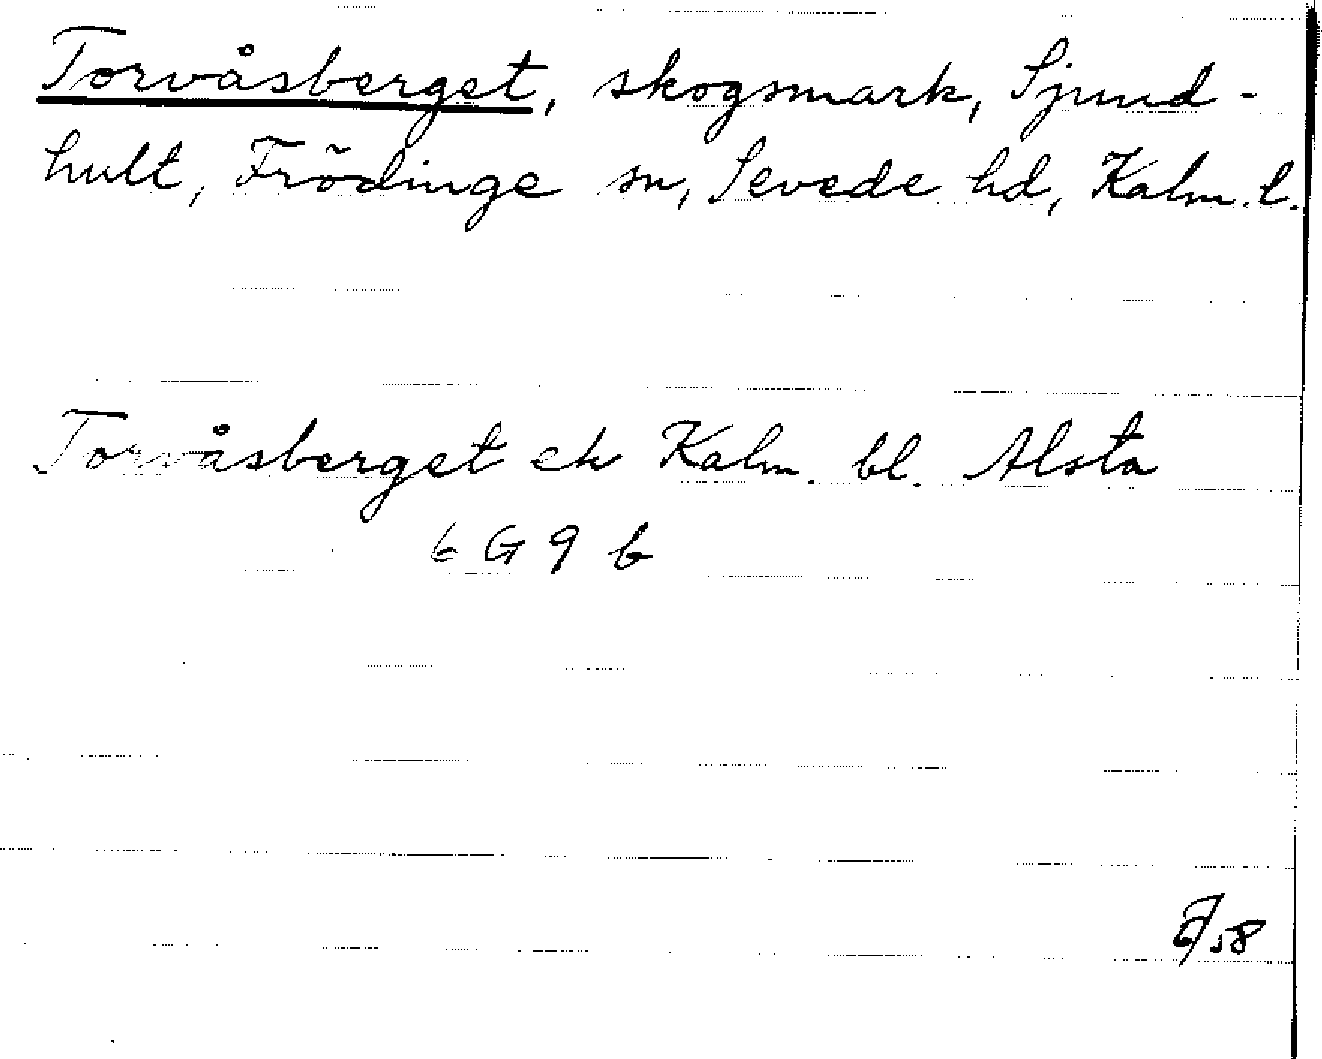 Torvåsberget, skogsmark, Sjund-
hult, Frödinge sn, Sevede hd, Kalm. l.
Torvåsberget ek Kalm. bl. Alsta
6 G 9 b
/58